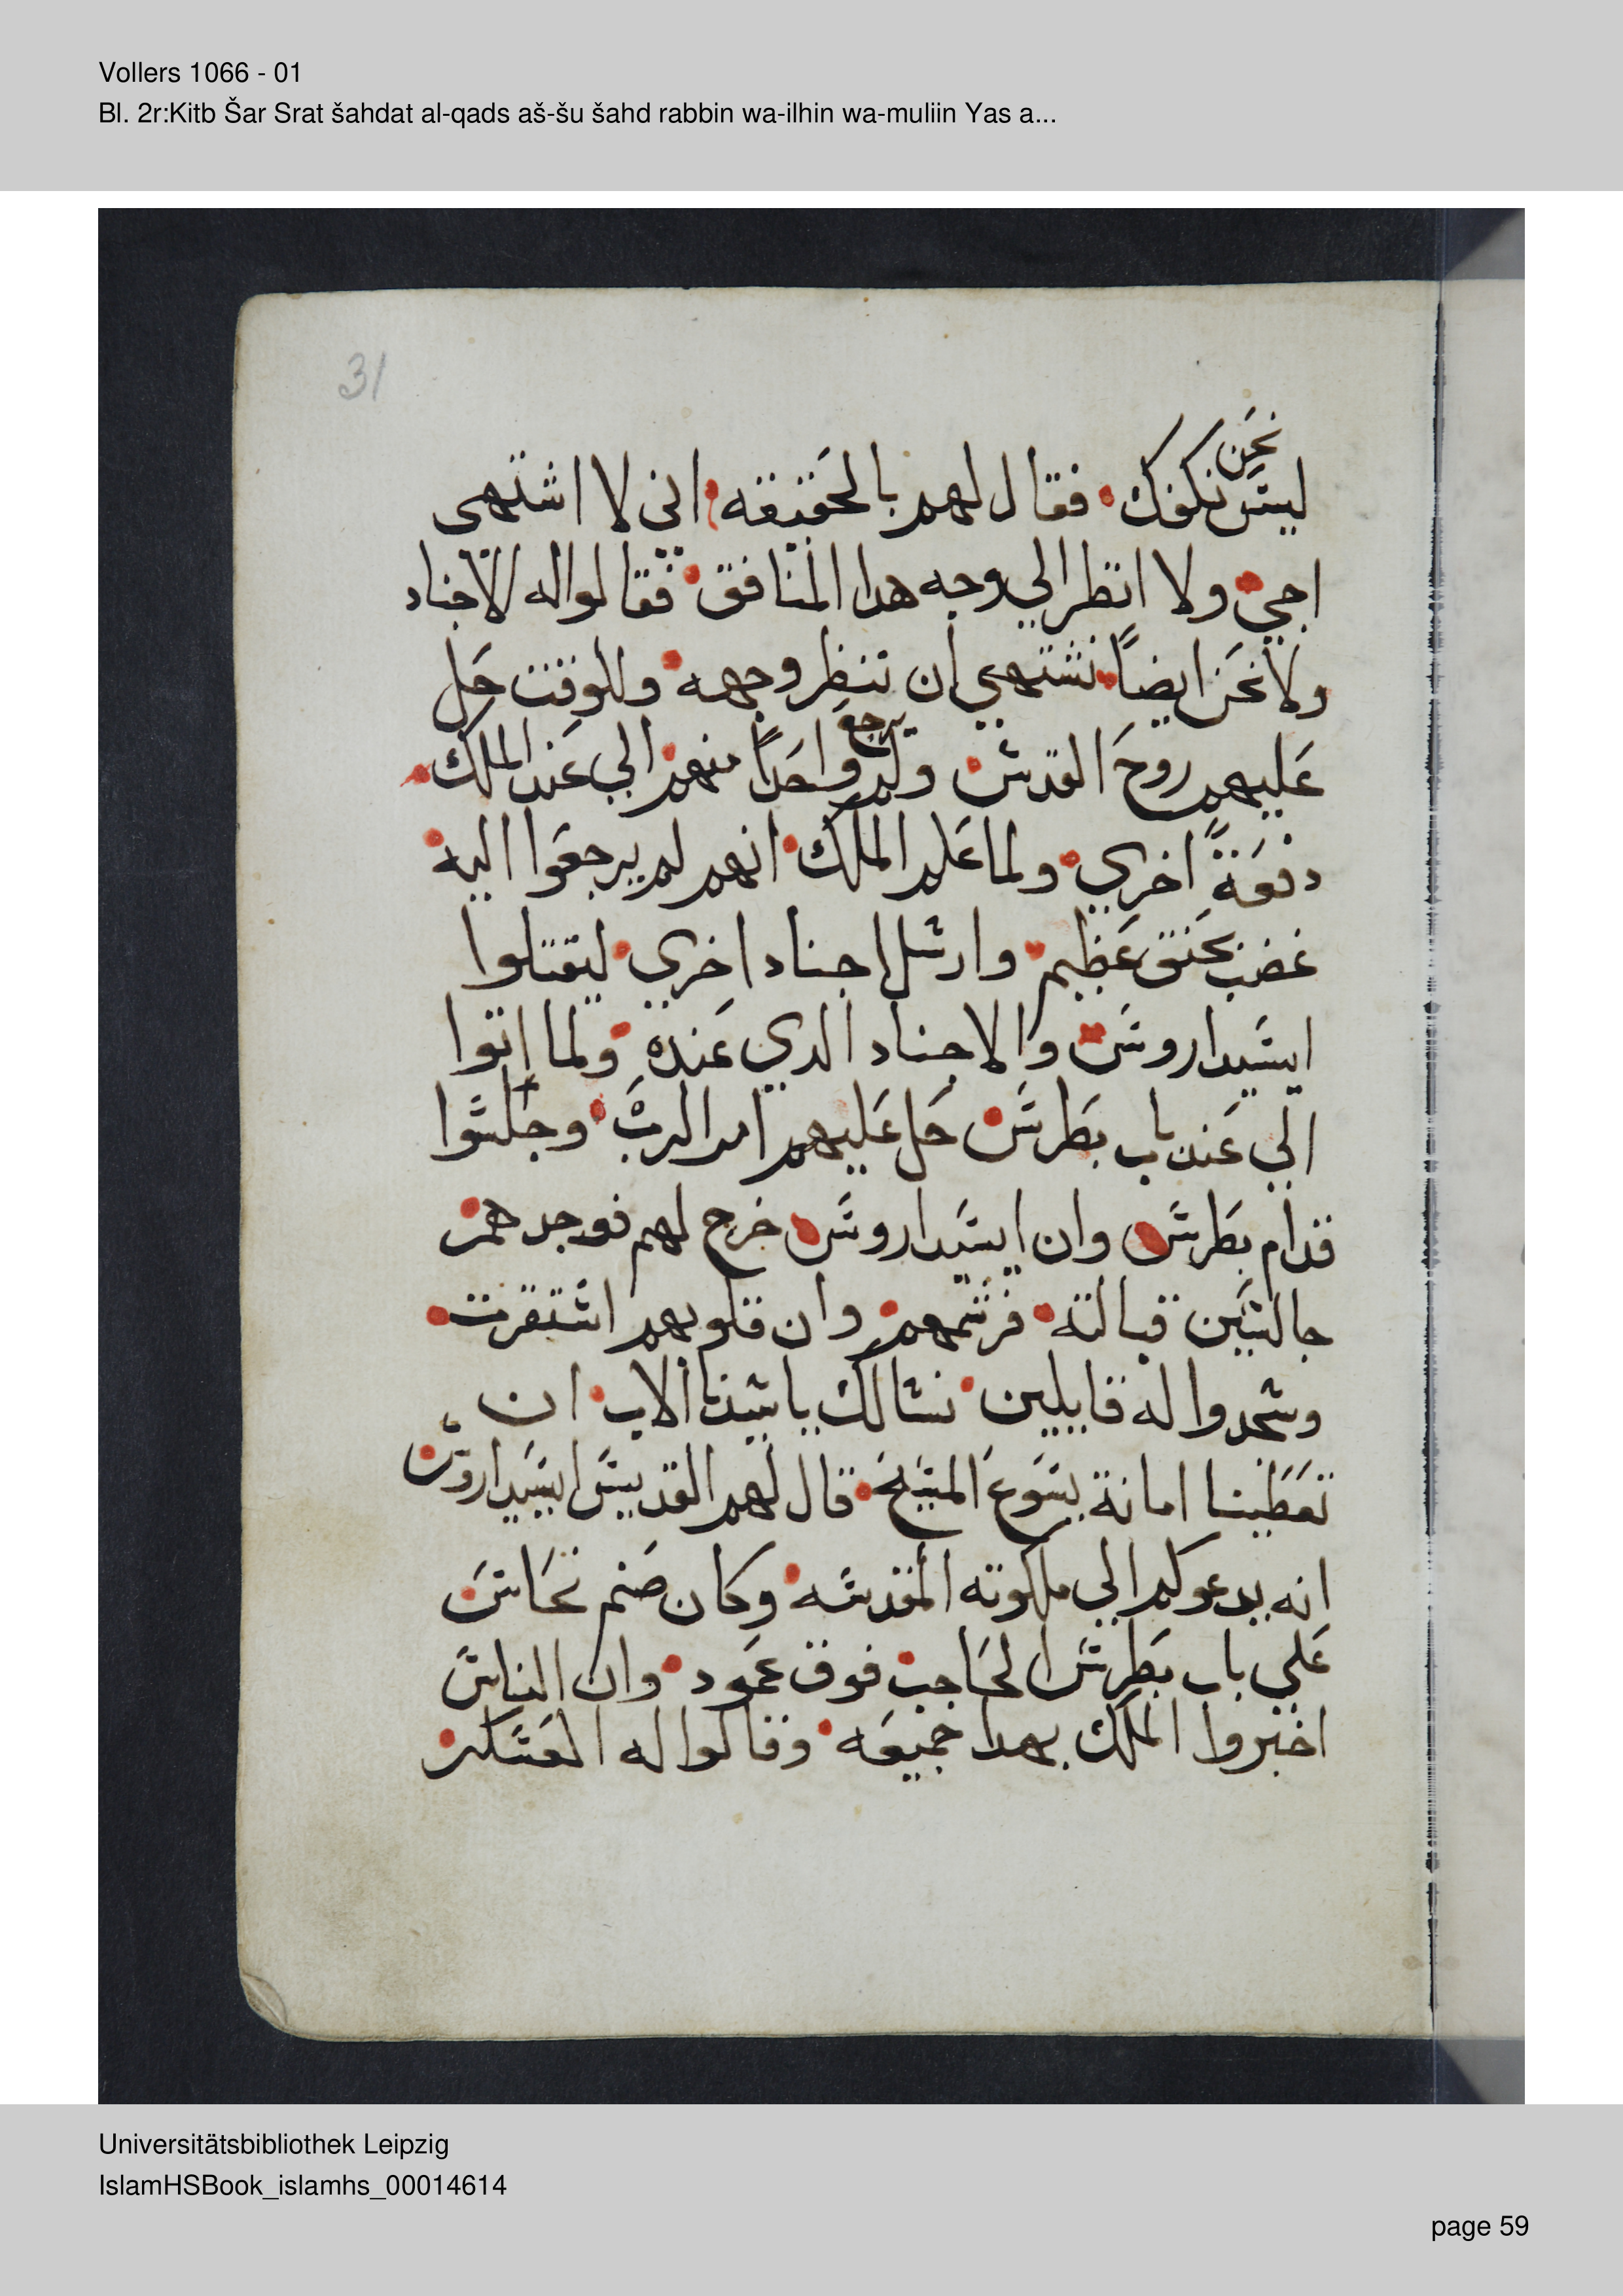 Vollers 1066 - 01
Bl. 2r:Kitb Šar Srat šahdat al-qads aš-šu šahd rabbin wa-ilhin wa-muliin Yas a...
31
نحن
ليس نكفك فقال لهم بالحقيقه اني لا اشتهى
اجي ولا انظر الي وجه هدا المنافق فقالوا له الاجناد
ولا نحن ايضاً نشتهي ان ننظر وجهه وللوقت حل
يرجع
عليهم روح القدس ولم واحداً منهم الي عند الملك
دفعةً اخري ولما علم الملك انهم لم يرجعوا اليه
غضب بحنق عظيم وارسل اجناد اخري ليقتلوا
ايسيداروس والاجناد الدي عنده ولما اتوا
الي عند باب بطرس حل عليهم امر الرب وجلسوا
قدام بطرس وان ايسيداروس خرج لهم فوجدهم
جالسين قبالته فرشمهم وان قلوبهم استقرت
وسجدوا له قايلين نسالك ياسيدنا الاب ان
تعطينا امانة يسوع المسيح قال لهم القديس ايسيداروس
انه يدعوكم الي ملكوته المقدسه وكان صنم نحاس
علي باب بطرس الحاجب فوق عمود وان الناس
اخبروا الملك بهدا جميعه وقالوا له العسكر
Universitätsbibliothek Leipzig
IslamHSBook_islamhs_00014614
page 59